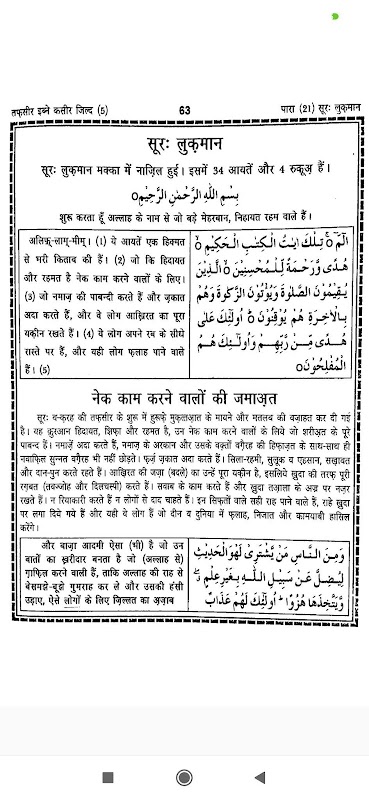 तफ़सीर इब्ने कसीर जिल्द (5)
63
पारा (21) सूरः लुक़मान
सूरः लुक़मान
सूरः लुक़मान मक्का में नाज़िल हुई। इसमें 34 आयतें और 4 रुकूअ़ हैं।
بِسْمِ اللّٰهِ الرَّحْمٰنِ الرَّحِيْمِ○
शुरू करता हूँ अल्लाह के नाम से जो बड़े मेहरबान, निहायत रहम वाले हैं।
अलिफ़्-लाम्-मीम्। (1) ये आयतें एक हिक्मत
से भरी किताब की हैं। (2) जो कि हिदायत
और रहमत है नेक काम करने वालों के लिए।
(3) जो नमाज़ की पाबन्दी करते हैं और ज़कात
अदा करते हैं, और वे लोग आख़िरत का पूरा
यक़ीन रखते हैं। (4) ये लोग अपने रब के सीधे
रास्ते पर हैं, और यही लोग फ़लाह पाने वाले
हैं। (5)
الٓمّٓ ○ تِلْكَ اٰيٰتُ الْكِتٰبِ الْحَكِيْمِ ○
هُدًى وَّرَحْمَةً لِّلْمُحْسِنِيْنَ ○ الَّذِيْنَ
يُقِيْمُوْنَ الصَّلٰوةَ وَيُؤْتُوْنَ الزَّكٰوةَ وَهُمْ
بِالْاٰخِرَةِ هُمْ يُوْقِنُوْنَ ○ اُولٰٓئِكَ عَلٰى
هُدًى مِّنْ رَّبِّهِمْ وَاُولٰٓئِكَ هُمُ
الْمُفْلِحُوْنَ○
नेक काम करने वालों की जमाअ़त
सूरः ब-क़रह की तफ़सीर के शुरू में हुरूफ़े मुक़त्तआ़त के मायने और मतलब की वज़ाहत कर दी गई
है। यह क़ुरआन हिदायत, शिफ़ा और रहमत है, उन नेक काम करने वालों के लिये जो शरीअ़त के पूरे
पाबन्द हैं। नमाज़ें अदा करते हैं, नमाज़ के अरकान और उसके वक़्तों वग़ैरह की हिफ़ाज़त के साथ-साथ ही
नवाफ़िल सुन्नत वग़ैरह भी नहीं छोड़ते। फ़र्ज़ ज़कात अदा करते हैं। सिला-रहमी, सुलूक व एहसान, सख़ावत
और दान-पुन करते रहते हैं। आख़िरत की जज़ा (बदले) का उन्हें पूरा यक़ीन है, इसलिये ख़ुदा की तरफ़ पूरी
रग़बत (तवज्जोह और दिलचस्पी) करते हैं। सवाब के काम करते हैं और ख़ुदा तआ़ला के अज्र पर नज़र
रखते हैं। न रियाकारी करते हैं न लोगों से दाद चाहते हैं। इन सिफ़तों वाले सही राह पाने वाले हैं, राहे ख़ुदा
पर लगा दिये गये हैं और यही वे लोग हैं जो दीन व दुनिया में फ़लाह, निजात और कामयाबी हासिल
करेंगे।
और बाज़ा आदमी ऐसा (भी) है जो उन
बातों का ख़रीदार बनता है जो (अल्लाह से)
ग़ाफ़िल करने वाली हैं, ताकि अल्लाह की राह से
बेसमझे-बूझे गुमराह कर ले और उसकी हंसी
उड़ाए, ऐसे लोगों के लिए ज़िल्लत का अ़ज़ाब
وَمِنَ النَّاسِ مَنْ يَّشْتَرِىْ لَهْوَالْحَدِيْثِ
لِيُضِلَّ عَنْ سَبِيْلِ اللّٰهِ بِغَيْرِ عِلْمٍ
وَّيَتَّخِذَهَا هُزُوًا ؕ اُولٰٓئِكَ لَهُمْ عَذَابٌ